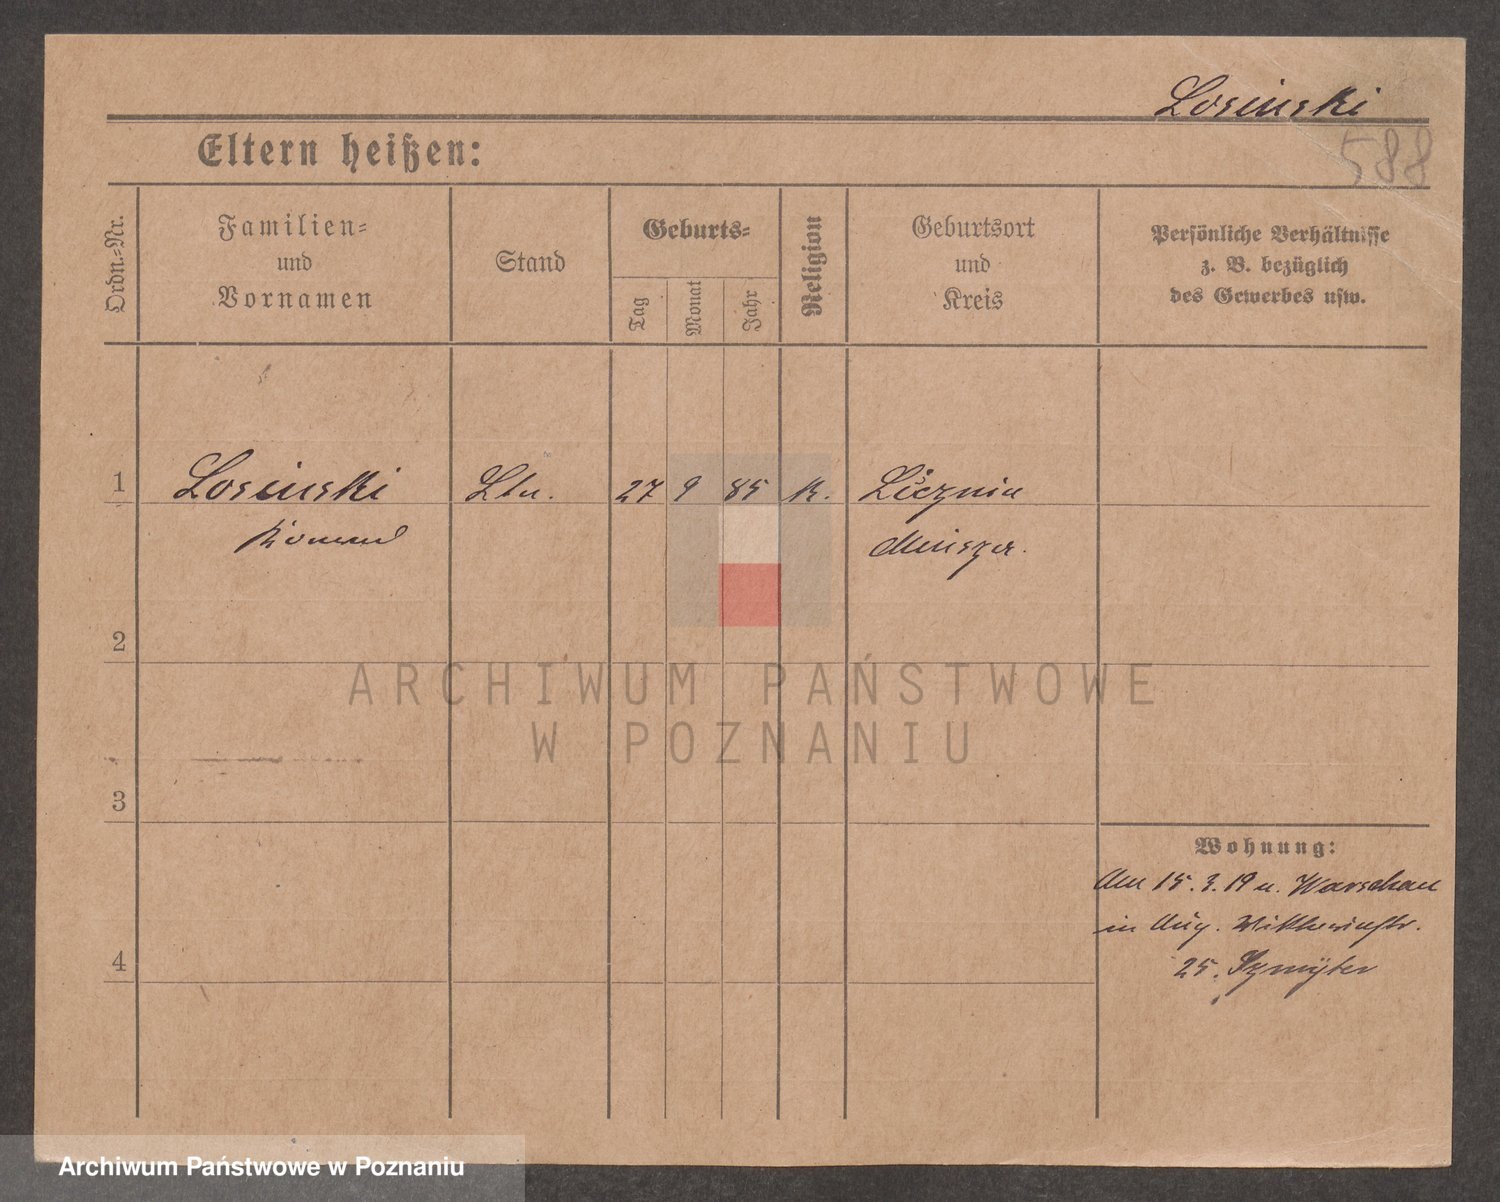 Losinski
588
Eltern heißen:
Ordn.-Nr.
Familien-
und
Vornamen
Stand
Geburts-
Tag
Monat
Jahr
Religion
Geburtsort
und
Kreis
Persönliche Verhältnisse
z. B. bezüglich
des Gewerbes usw.
1 Losinski Ltn. 27 9 85 K.
2
ARCHIWUM PAŃSTWOWE
W POZNANIU
3
Wohnung:
Am 15. 3. 19 n. Warschau
in Aug.
4
25.
Archiwum Państwowe w Poznaniu